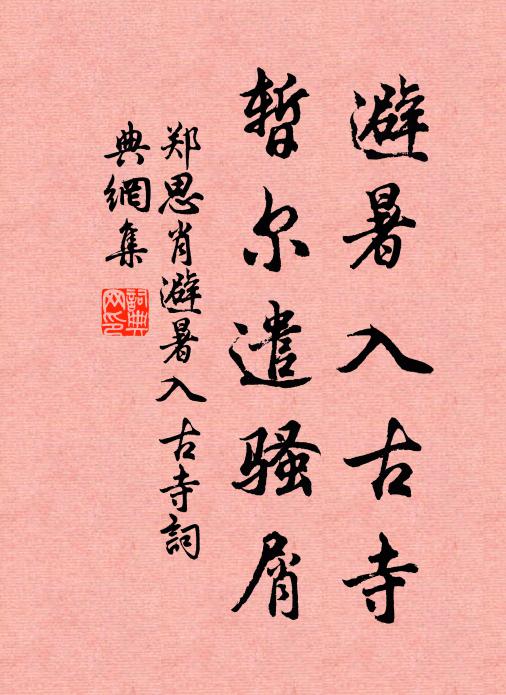 避暑入古寺
暂尔遣骚屑
郑思肖避暑入古寺詞
典網集
詞典网印